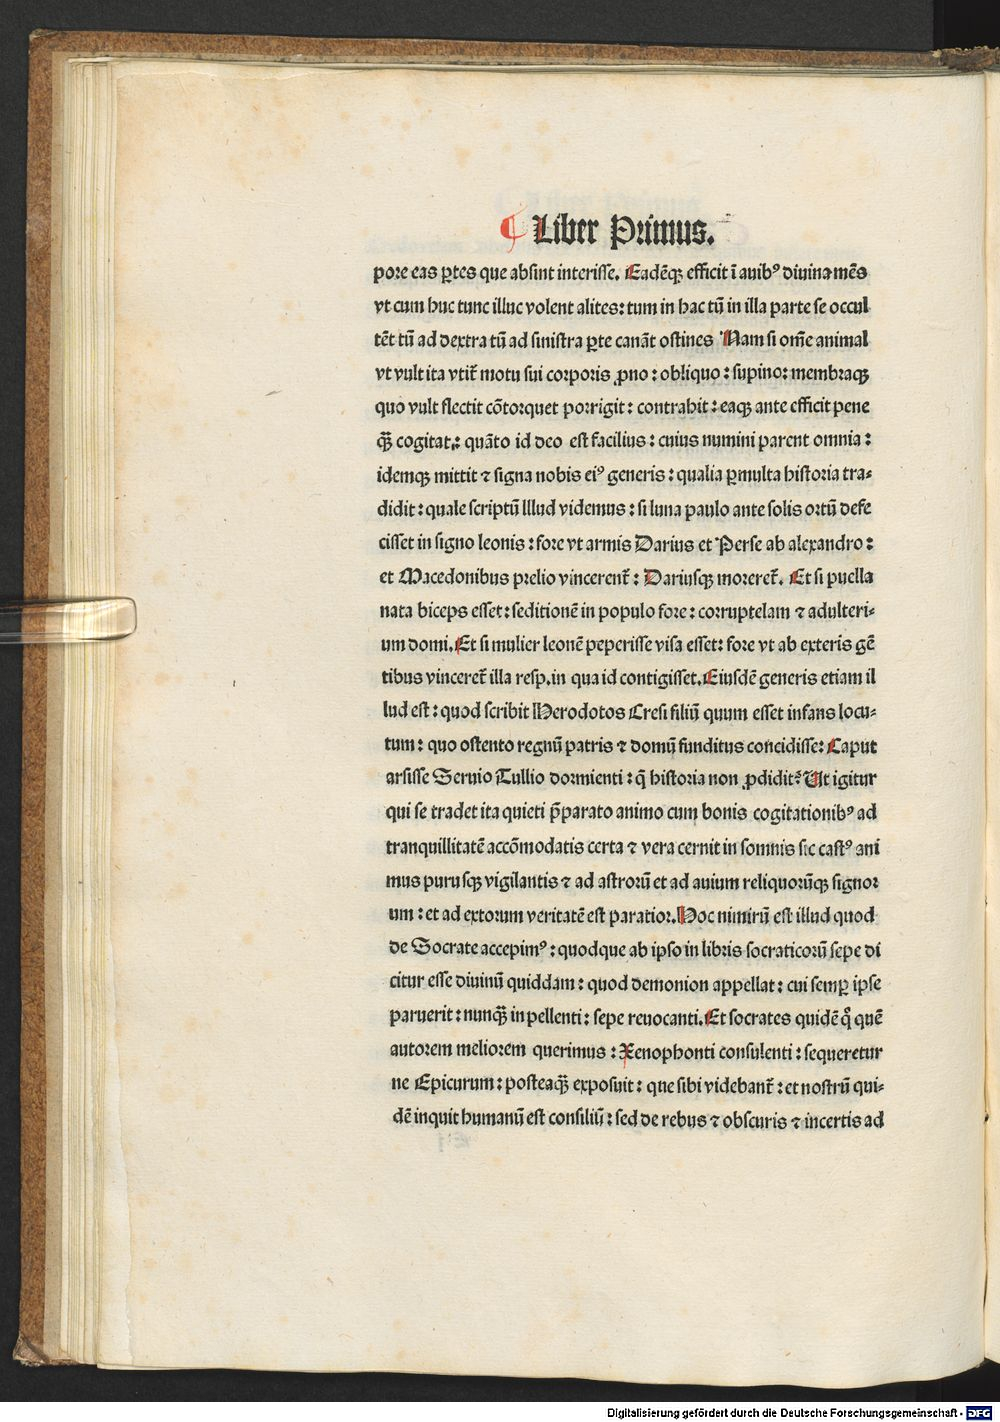 ¶ Liber Primus.
pore eas ꝑtes que absint interisse. Eadēqꝫ efficit ī auibꝰ diuina mēs
vt cum huc tunc illuc volent alites: tum in hac tū in illa parte se occul
tēt tū ad dextra tū ad sinistra ꝑte canāt ostines Nam si om̄e animal
vt vult ita vtit᷑ motu sui corporis ꝓno: obliquo: supino: membraqꝫ
quo vult flectit cōtorquet porrigit: contrahit: eaqꝫ ante efficit pene
qꝫ̄ cogitat: quāto id deo est facilius: cuius numini parent omnia:
idemqꝫ mittit ⁊ signa nobis eiꝰ generis: qualia ꝑmulta historia tra-
didit: quale scriptū Illud videmus: si luna paulo ante solis ortū defe
cisset in signo leonis: fore vt armis Darius et Perse ab alexandro:
et Macedonibus prelio vincerent᷑: Dariusqꝫ moreret᷑. Et si puella
nata biceps esset: seditionē in populo fore: corruptelam ⁊ adulteri-
um domi. Et si mulier leonē peperisse visa esset: fore vt ab exteris gē
tibus vinceret᷑ illa resp. in qua id contigisset. Eiusdē generis etiam il
lud est: quod scribit Herodotos Cresi filiū quum esset infans locu-
tum: quo ostento regnū patris ⁊ domū funditus concidisse: Caput
arsisse Seruio Tullio dormienti: q̄ historia non ꝓdidit? Ut igitur
qui se tradet ita quieti p̄parato animo cum bonis cogitationibꝰ ad
tranquillitatē accōmodatis certa ⁊ vera cernit in somnis sic castꝰ ani
mus purusqꝫ vigilantis ⁊ ad astrorū et ad auium reliquorūqꝫ signor
um: et ad extorum veritatē est paratior. Hoc nimirū est illud quod
de Socrate accepimꝰ: quodque ab ipso in libris socraticorū sepe di
citur esse diuinū quiddam: quod demonion appellat: cui semꝑ ipse
paruerit: nunqꝫ̄ inpellenti: sepe reuocanti. Et socrates quidē q̊ quē
autorem meliorem querimus: Xenophonti consulenti: sequeretur
ne Epicurum: posteaqꝫ̄ exposuit: que sibi videbant᷑: et nostrū qui-
dē inquit humanū est consiliū: sed de rebus ⁊ obscuris ⁊ incertis ad
Digitalisierung gefördert durch die Deutsche Forschungsgemeinschaft - DFG